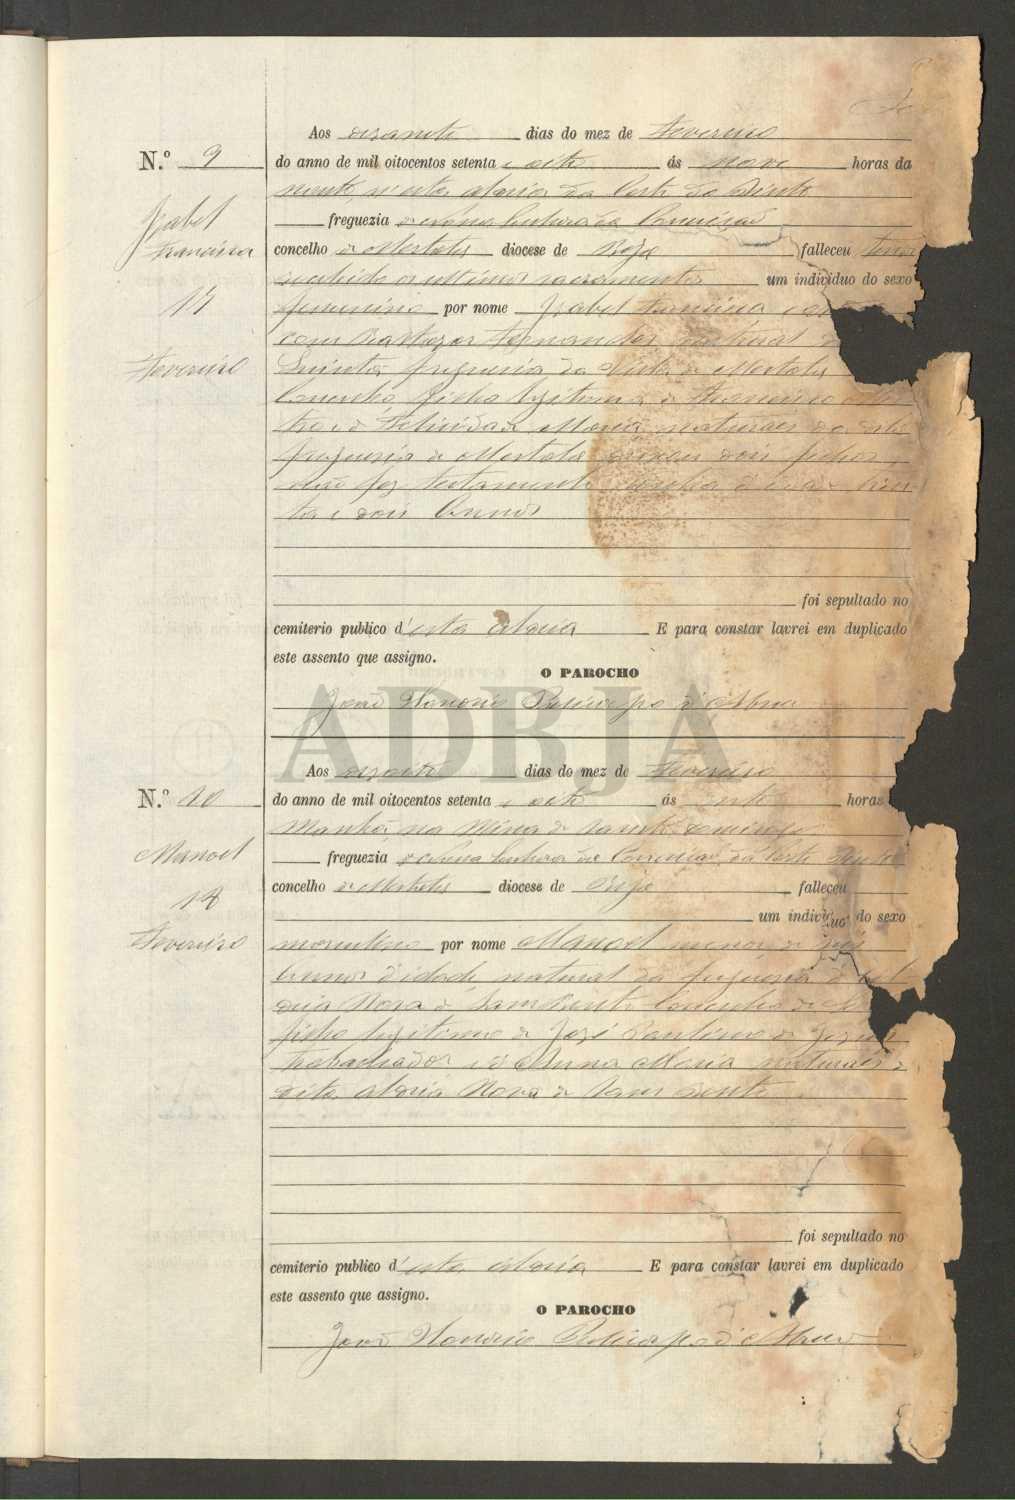 Aos dezassete dias do mez de Fevereiro
N.º 9 do anno de mil oitocentos setenta e oito ás nove horas da
noute, n'esta aldeia da Corte do Pinto
Izabel freguezia de Nossa Senhora da Conceição
Francisca concelho de Mertola diocese de Beja falleceu tendo
recebido os ultimos sacramentos um individuo do sexo
17 femenino por nome Izabel Francisca
com Balthazar Fernandes natural
Fevereiro freguezia da Villa de Mertola
Concelho filha legitima de Francisco
e de Felicidade Maria, naturaes da
freguezia de Mertola deixou dois filhos
não fez testamento tinha de idade
ta e dois annos
foi sepultado no
cemiterio publico d'esta aldeia E para constar lavrei em duplicado
este assento que assigno.
O PAROCHO
João Honorio Policarpo d'Abreu
ADBJA
Aos dezoito dias do mez de Fevereiro
N.º 10 do anno de mil oitocentos setenta e oito ás horas
Manhã, na Mina de Sam Domingos
Manoel freguezia de Nossa Senhora da Conceição da Corte Pinto
concelho de Mertola diocese de Beja falleceu
18 um individuo do sexo
Fevereiro masculino por nome Manoel menor de
annos d'idade, natural da freguezia d'
deia Nova de Sam Bento Concelho de
filho legitimo de José Paulino de
trabalhador e de Anna Maria naturaes da
dita aldeia Nova de Sam Bento
foi sepultado no
cemiterio publico d'esta aldeia E para constar lavrei em duplicado
este assento que assigno.
O PAROCHO
João Honorio Policarpo d'Abreu